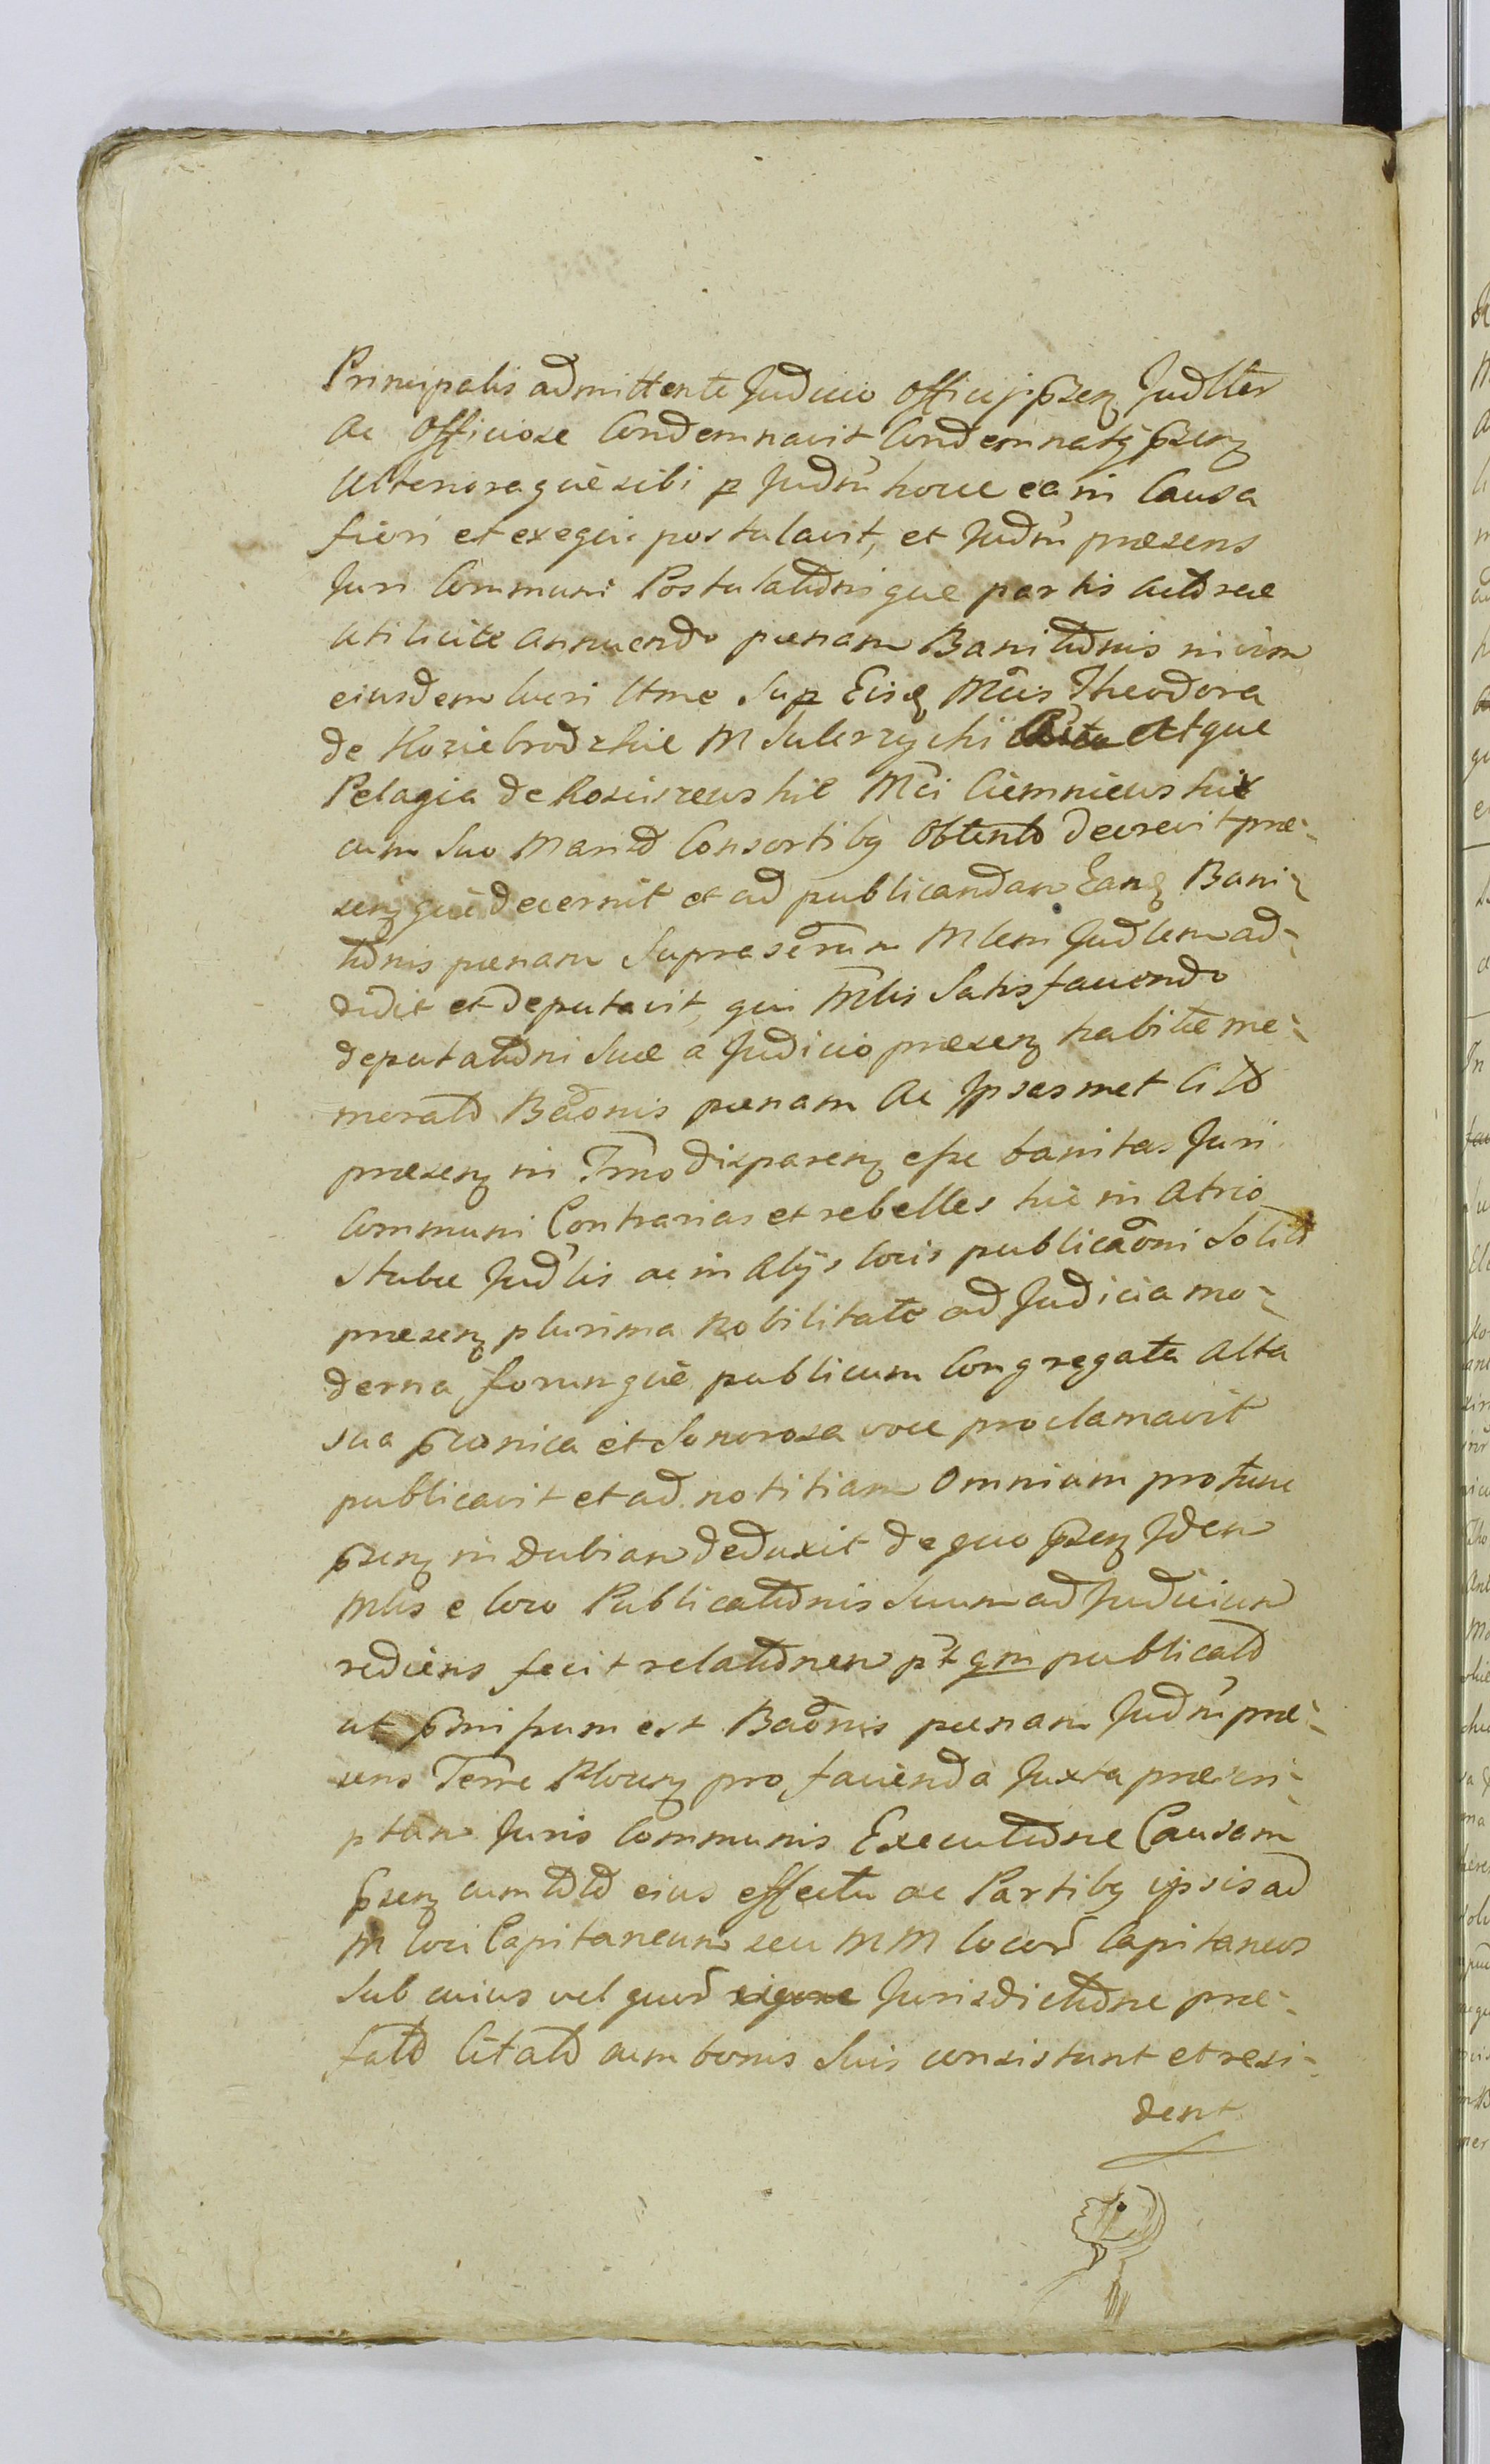 Principalis admittente Judicio Officij psenz Judltēr
Ac Officiose Condemnavit Condemnatq psenz
Ulterioraque sibi p Judm hocce ea in Causa
fieri et exequi postulavit, et Judm præsens
Juri Communi Postulatōnique partis Actoreæ
uti licite annuendo pœnam Banitōnis in vim
eiusdem lucri Itme Sup Eisd Mcis Theodora
de Koziebrodzkie M Sulerzychi Atque
Pelagia de Rosciszewskie Mci Ciemniewski
cum Suo Marito Consortibq Obtento decrevit præ-
senzque decernit et ad publicandam Eand Bani-
tōnis pœnam Suprascrum Mlem Judlem ad-
didit et deputavit, qui Mlis Satisfaciendo
deputatōni Suæ a Judicio præsenz habitæ me-
morato Bāonis pœnam Ac Ipsasmet Cito
præsenz in Trmo disparenz esse banitas Juri
Communi Contrarias et rebelles hic in Atrio
Stubæ Judlis ac in Alijs locis publicāoni Solito
præsenz plurima Nobilitate ad Judicia mo-
derna, forumque publicum Congregata Alta
sua præonica et Sonorosa voce proclamavit
publicavit et ad notitiam Omnium pro tunc
psenz indubiam deduxit de quo psenz Idem
Mlis e loco Publicatōnis Suum ad Judicium
rediens fecit relatōnem pt qm publicato
ut pmissum est Bāonis pœnam Judm præ-
sens Terre Plocenz pro facienda Juxta præscri-
ptum Juris Communis Executōne Causam
psenz cum toto eius effectu ac Partibq ipsis ad
M loci Capitaneum seu MM locor Capitaneos
Sub cuius vel quor Jurisdictōne præ-
fato Citato cum bonis Suis consistunt et resi-
dent